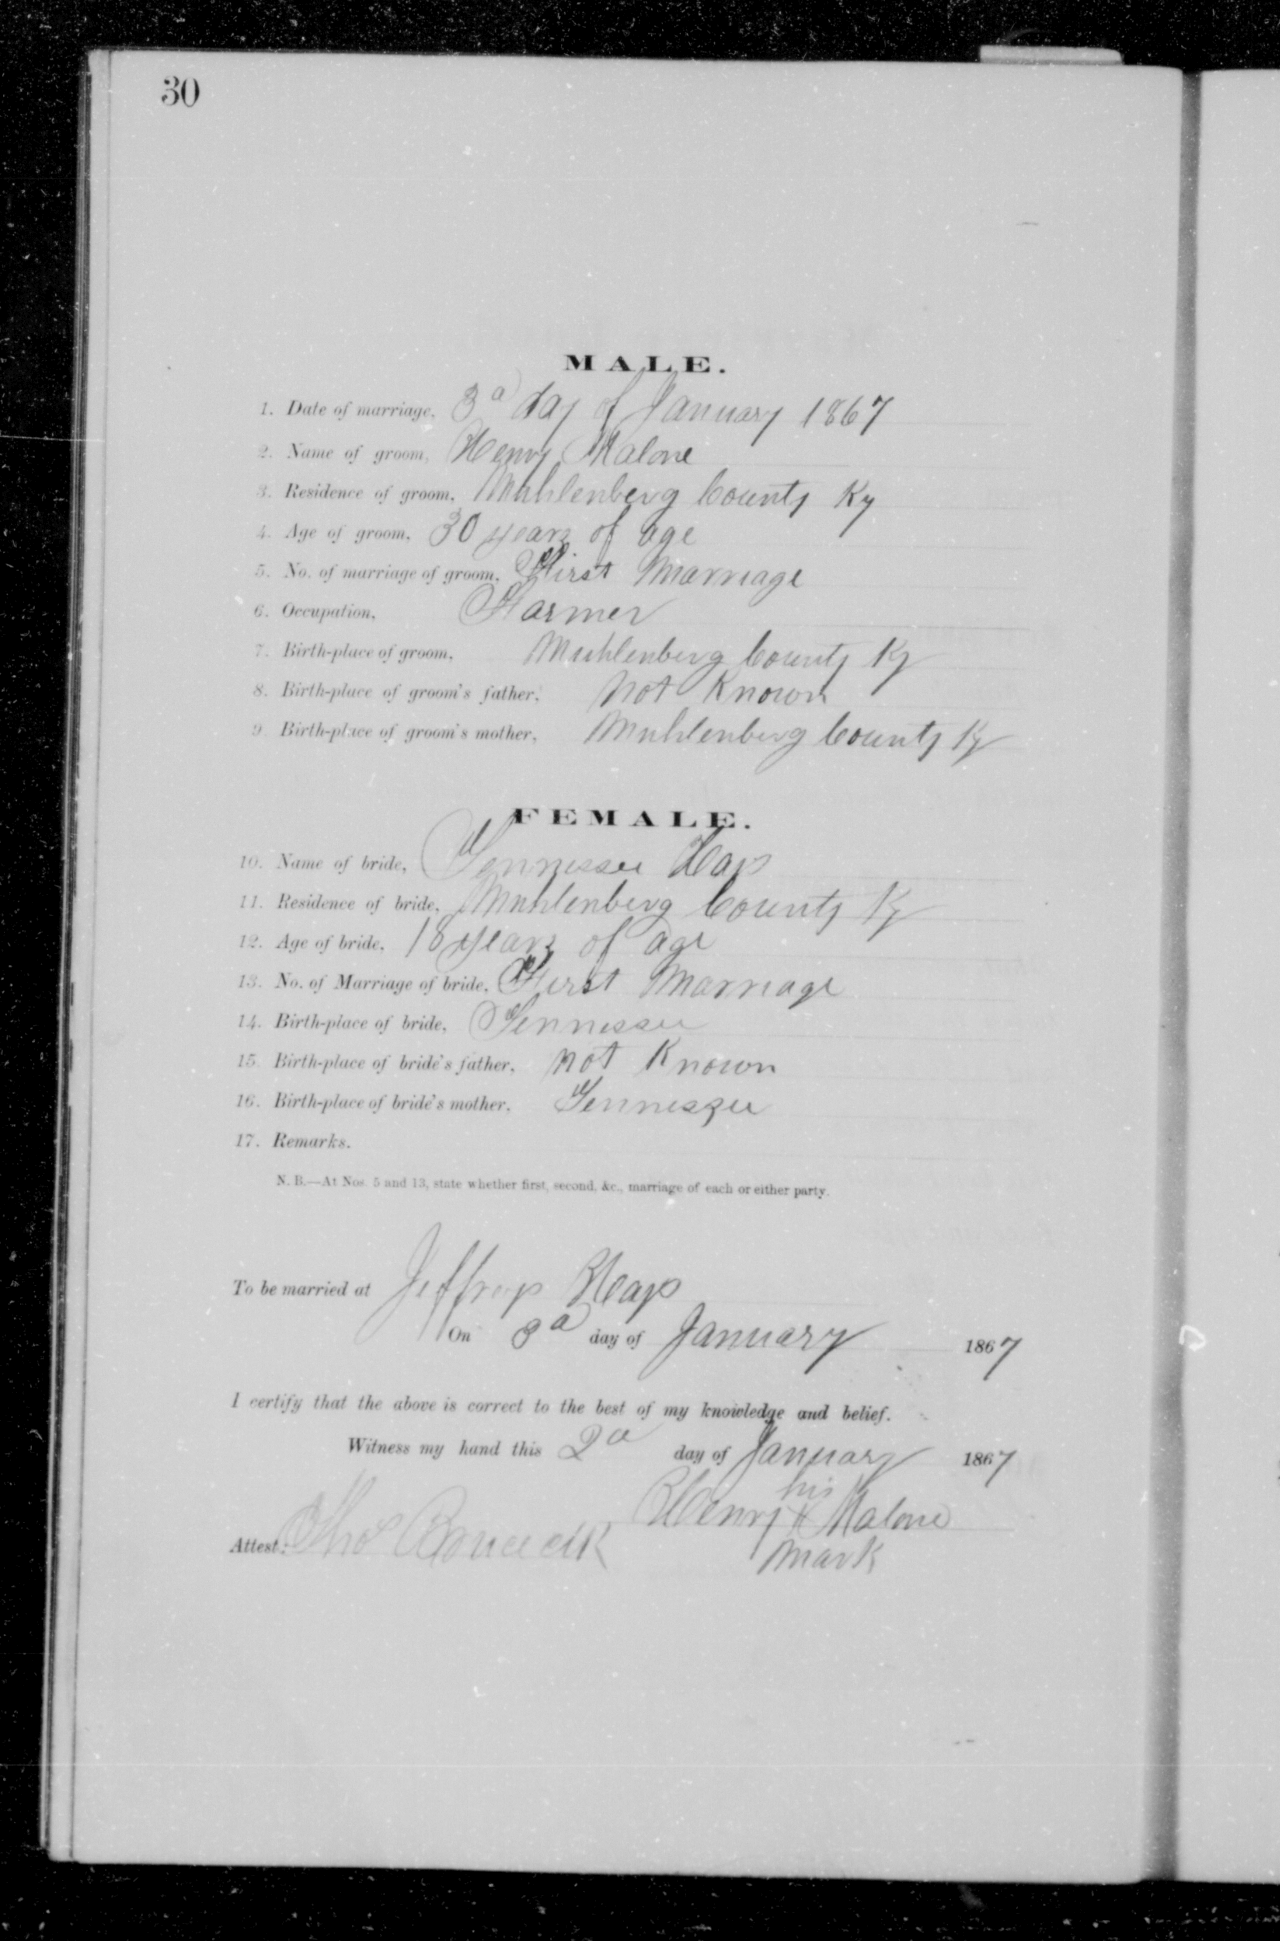 30
MALE.
1. Date of marriage, 3d day of January 1867
2. Name of groom, Henry Malone
3. Residence of groom, Muhlenberg County Ky
4. Age of groom, 30 years of age
5. No. of marriage of groom, First Marriage
6. Occupation, Farmer
7. Birth-place of groom, Muhlenberg County Ky
8. Birth-place of groom's father, not Known
9. Birth-place of groom's mother, Muhlenberg County Ky
FEMALE.
10. Name of bride, Tennessee
11. Residence of bride, Muhlenberg County Ky
12. Age of bride, 18 years of age
13. No. of Marriage of bride, First Marriage
14. Birth-place of bride, Tennessee
15. Birth-place of bride's father, not Known
16. Birth-place of bride's mother, Tennessee
17. Remarks.
N. B.—At Nos. 5 and 13, state whether first, second, &c., marriage of each or either party.
To be married at
On 3d day of January 1867
I certify that the above is correct to the best of my knowledge and belief.
Witness my hand this 2d day of January 1867
his
Henry X Malone
Attest. Tho
mark